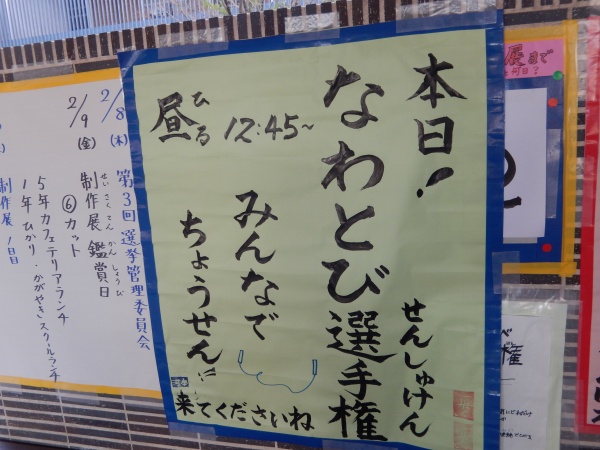 本日!
なわとび選手権
せんしゅけん
昼
ひる
12:45~
みんなで
ちょうせん!!
来てくださいね
展まで
2/8
(木)
第3回 選挙管理委員会
2/9
(金)
制作展 鑑賞日
せい さく てん かん しょう び
⑥カット
5年カフェテリアランチ
1年ひかり・かがやきスクールランチ
制作展 1日目
権